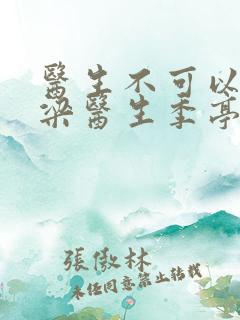 醫生不可以
梁醫生季亭
張傲林
未任同意禁止转载